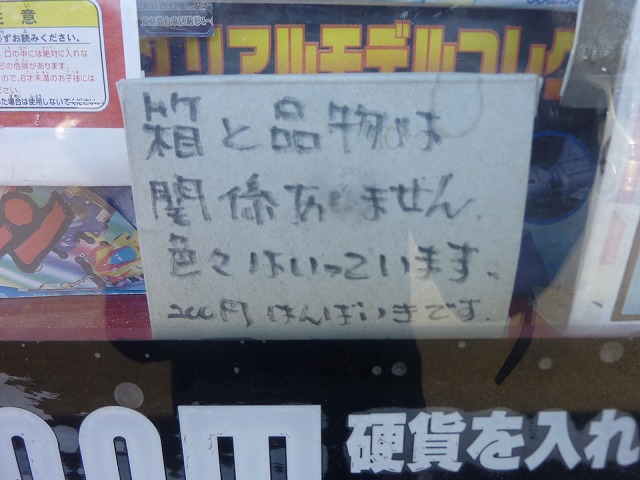 注意
ずお読みください。
口の中には絶対に入れな
どの危険があります。
ので、6才未満のお子様には
た場合は使用しないでくださ
リアルモデルコレク
箱と品物は
関係ありません。
色々はいっています。
200円はんばいきです。
硬貨を入れ